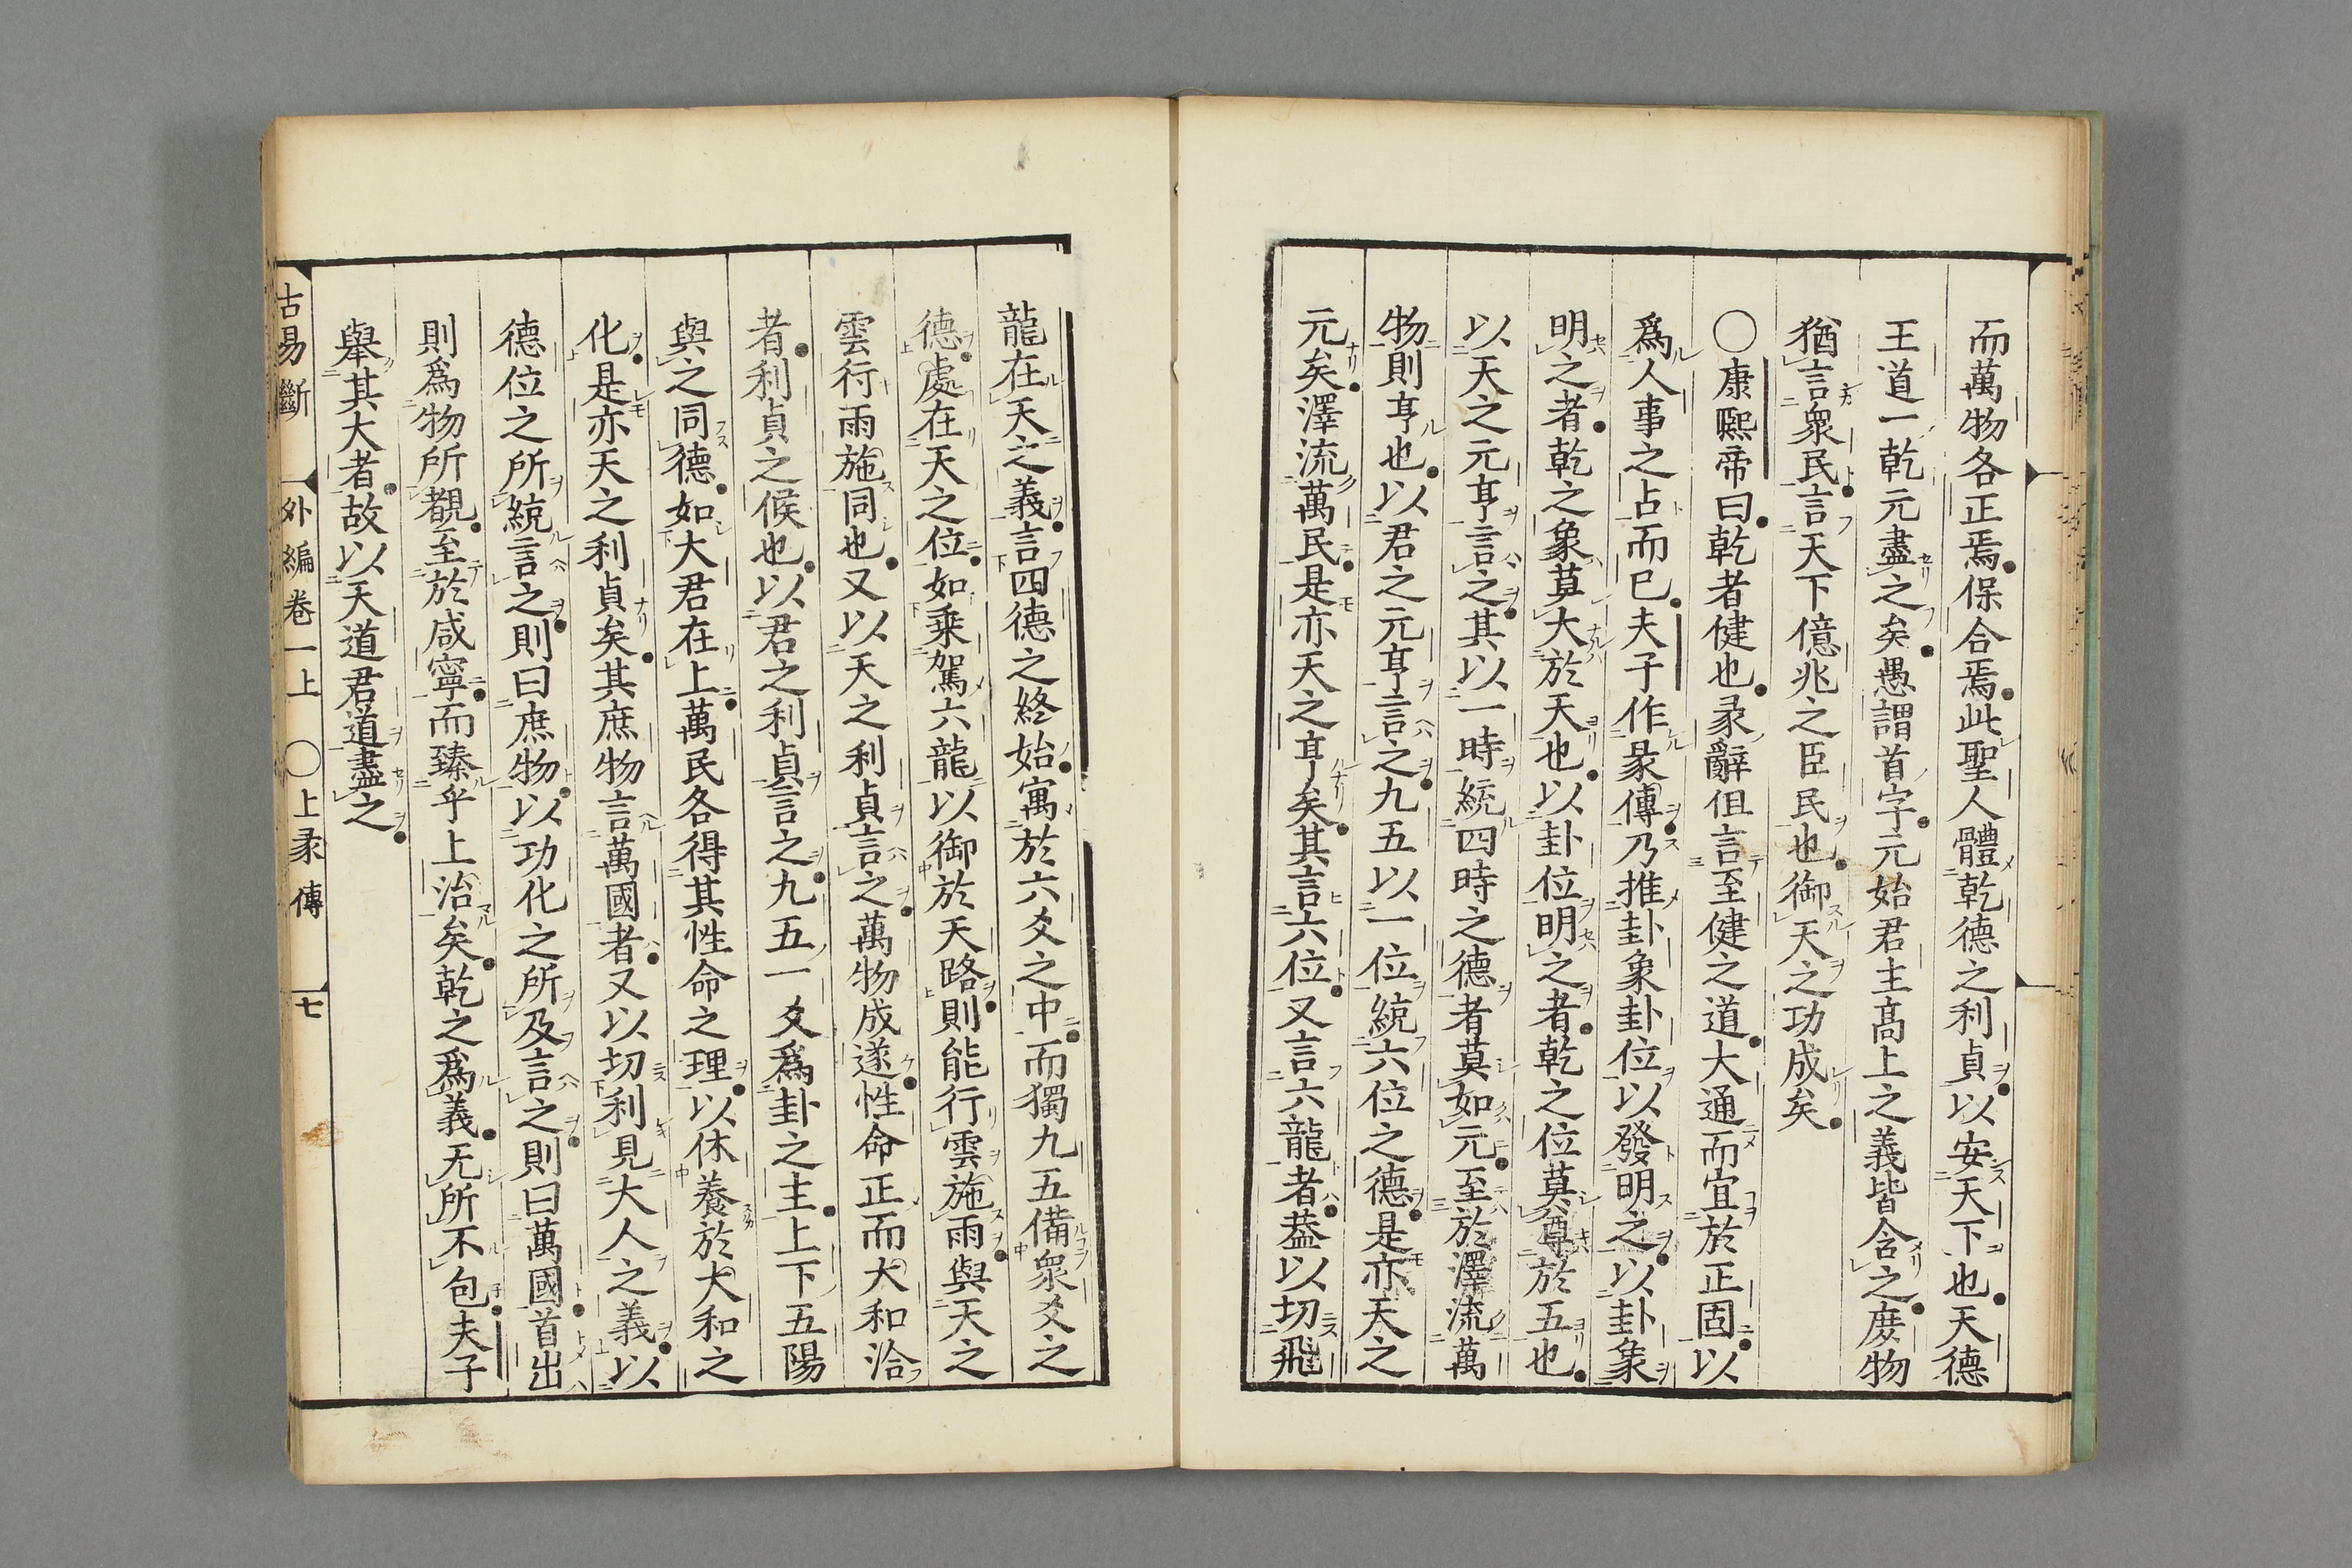 而萬物各正焉保合焉此聖人體乾德之利貞以安天下也天德
王道一乾元盡之矣愚謂首字元始君主髙上之義皆含之庶物
猶言衆民言天下億兆之臣民也御天之功成矣
○康熙帝曰乾者健也彖辭但言至健之道大通而宜於正固以
爲人事之占而已夫子作彖傳乃推卦象卦位以發明之以卦象
明之者乾之象莫大於天也以卦位明之者乾之位莫尊於五也
以天之元亨言之其以一時統四時之德者莫如元至於澤流萬
物則亨也以君之元亨言之九五以一位統六位之德是亦天之
元矣澤流萬民是亦天之亨矣其言六位又言六龍者葢以切飛
龍在天之義言四德之終始寓於六爻之中而獨九五備衆爻之
德處在天之位如乗駕六龍以御於天路則能行雲施雨與天之
雲行雨施同也又以天之利貞言之萬物成遂性命正而大和洽
者利貞之候也以君之利貞言之九五一爻爲卦之主上下五陽
與之同德如大君在上萬民各得其性命之理以休養於大和之
化是亦天之利貞矣其庶物言萬國者又以切利見大人之義以
德位之所統言之則曰庶物以功化之所及言之則曰萬國首出
則爲物所覩至於咸寧而臻乎上治矣乾之爲義无所不包夫子
舉其大者故以天道君道盡之
古易斷 外編卷一上 ○上彖傳 七